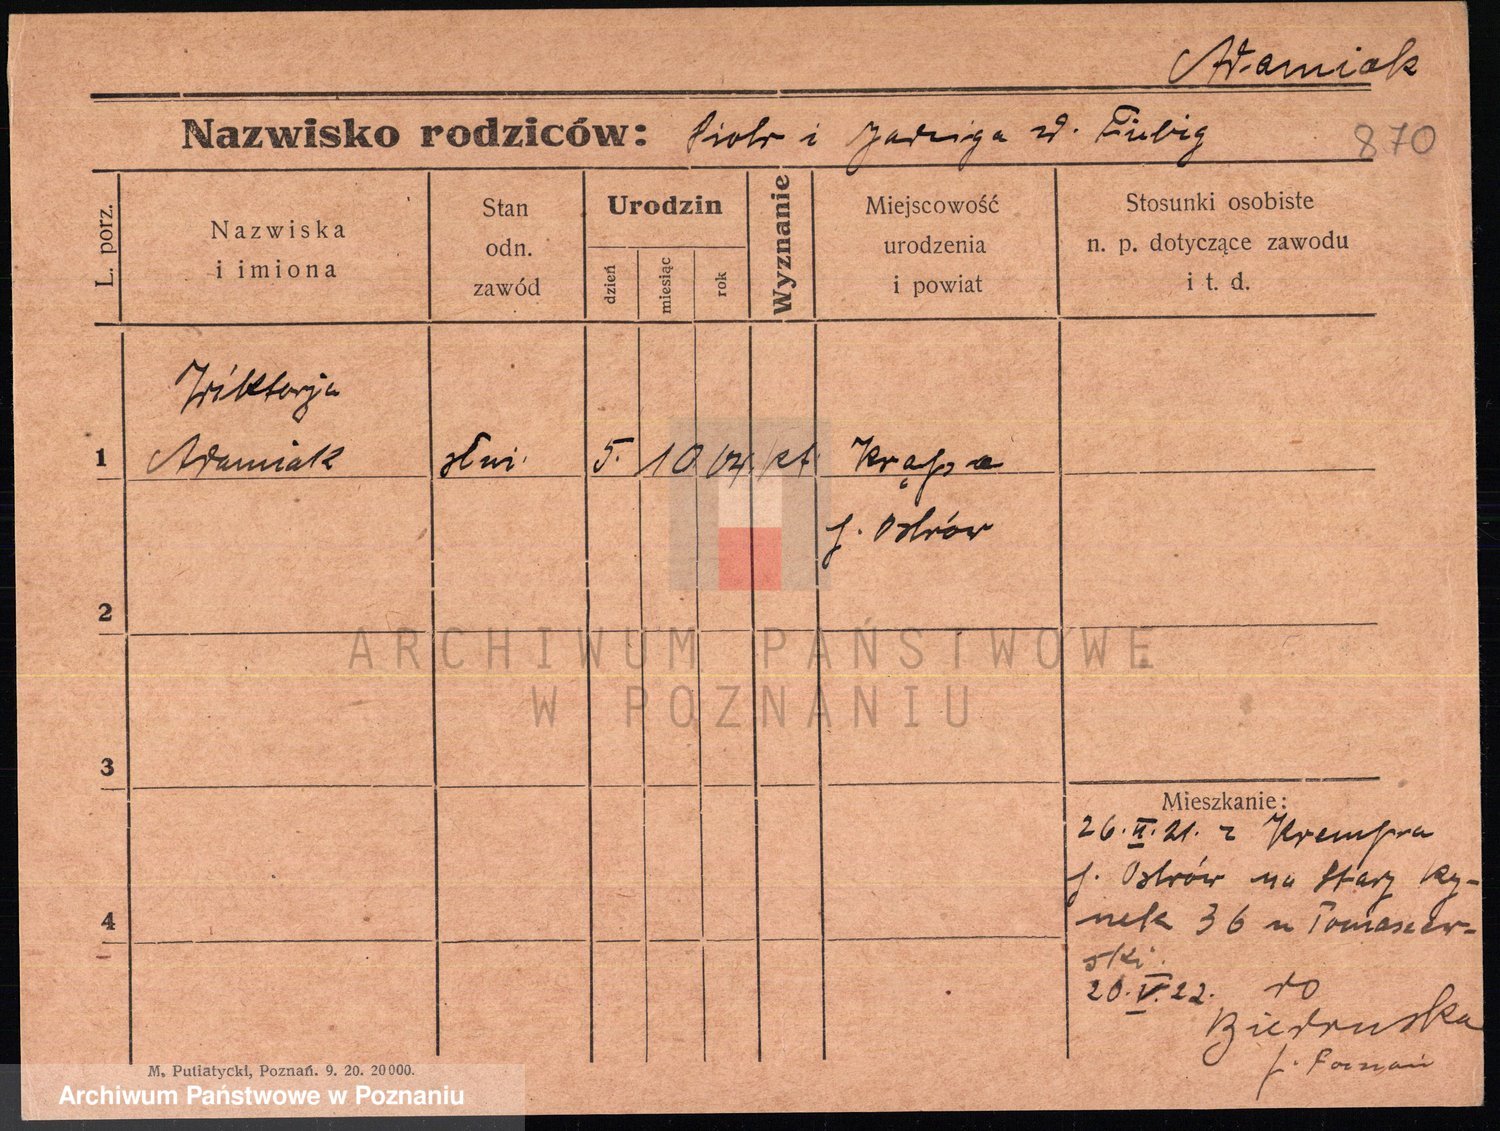 Adamiak
Nazwisko rodziców: Piotr i Jadwiga d. Fiebig
870
L. porz.
Nazwiska
i imiona
Stan
odn.
zawód
Urodzin
dzień
miesiąc
rok
Wyznanie
Miejscowość
urodzenia
i powiat
Stosunki osobiste
n. p. dotyczące zawodu
i t. d.
Wiktorja
1 Adamiak służ. 5. 10 04 kt. Krąpa
p. Ostrów
2
3
4
ARCHIWUM PAŃSTWOWE
W POZNANIU
Mieszkanie:
26.II.21. z Krempa
p. Ostrów na Stary Ry-
nek 36 u Tomaszew-
ski.
20.V.22. do
Biedruska
p. Poznań
M. Putiatycki, Poznań. 9. 20. 20000.
Archiwum Państwowe w Poznaniu